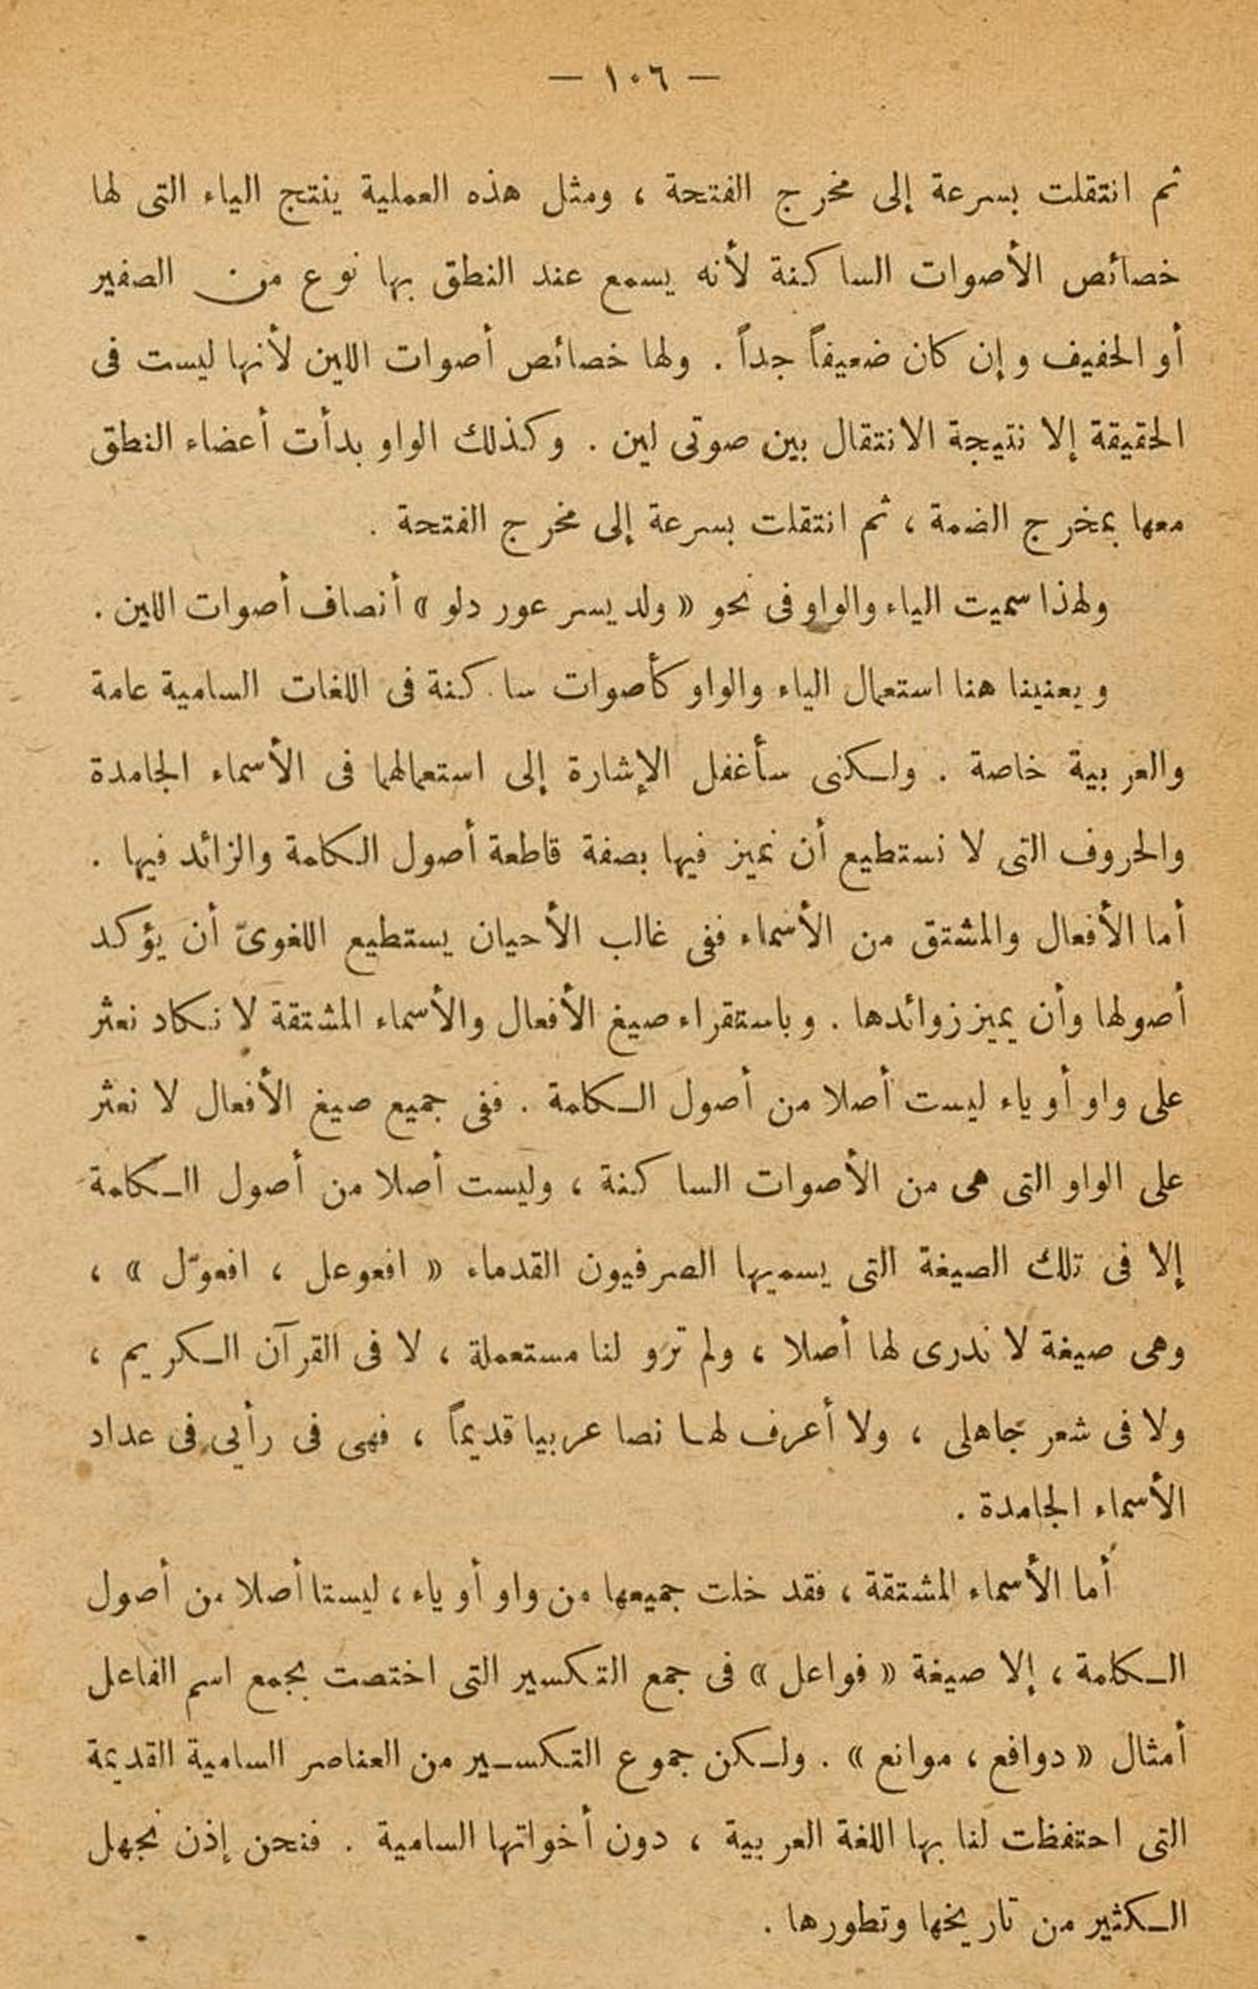 — ١٠٦ —
ثم انتقلت بسرعة إلى مخرج الفتحة ، ومثل هذه العملية ينتج الياء التى لها
خصائص الأصوات الساكنة لأنه يسمع عند النطق بها نوع من الصفير
أو الحفيف وإن كان ضعيفاً جداً . ولها خصائص أصوات اللين لأنها ليست فى
الحقيقة إلا نتيجة الانتقال بين صوتى لين . وكذلك الواو بدأت أعضاء النطق
معها بمخرج الضمة ، ثم انتقلت بسرعة إلى مخرج الفتحة .
ولهذا سميت الياء والواو فى نحو « ولد يسر عور دلو » أنصاف أصوات اللين .
ويعنينا هنا استعمال الياء والواو كأصوات ساكنة فى اللغات السامية عامة
والعربية خاصة . ولكنى سأغفل الإشارة إلى استعمالهما فى الأسماء الجامدة
والحروف التى لا نستطيع أن نميز فيها بصفة قاطعة أصول الكلمة والزائد فيها .
أما الأفعال والمشتق من الأسماء ففى غالب الأحيان يستطيع اللغوىّ أن يؤكد
أصولها وأن يميز زوائدها . وباستقراء صيغ الأفعال والأسماء المشتقة لا نكاد نعثر
على واو أو ياء ليست أصلا من أصول الكلمة . ففى جميع صيغ الأفعال لا نعثر
على الواو التى هى من الأصوات الساكنة ، وليست أصلا من أصول الكلمة
إلا فى تلك الصيغة التى يسميها الصرفيون القدماء « افعوعل ، افعوّل » ،
وهى صيغة لا ندرى لها أصلا ، ولم تَرْو لنا مستعملة ، لا فى القرآن الكريم ،
ولا فى شعر جاهلى ، ولا أعرف لها نصا عربيا قديماً ، فهى فى رأيى فى عداد
الأسماء الجامدة .
أما الأسماء المشتقة ، فقد خلت جميعها من واو أو ياء ، ليستا أصلا من أصول
الكلمة ، إلا صيغة « فواعل » فى جمع التكسير التى اختصت بجمع اسم الفاعل
أمثال « دوافع ، موانع » . ولكن جموع التكسير من العناصر السامية القديمة
التى احتفظت لنا بها اللغة العربية ، دون أخواتها السامية . فنحن إذن نجهل
الكثير من تاريخها وتطورها .